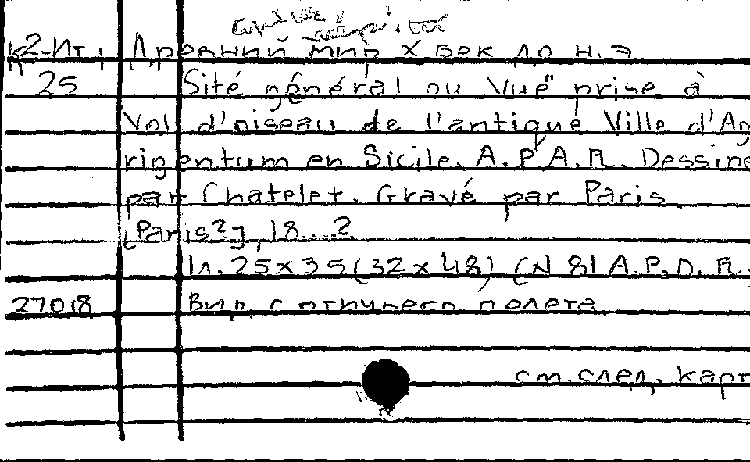 К2-Ит. Древний мир X век до н.э
25 Sité général ou Vue prise à
Vol d'oiseau de l'antique Ville d'Ag
rigentum en Sicile. A.P.A.R. Dessine
par Chatelet. Gravé par Paris.
[Paris?], 18...?
1л. 25x35 (32x48) (N 81 A.P.D.R.
27018 Вид с птичьего полета.
см. след. карт